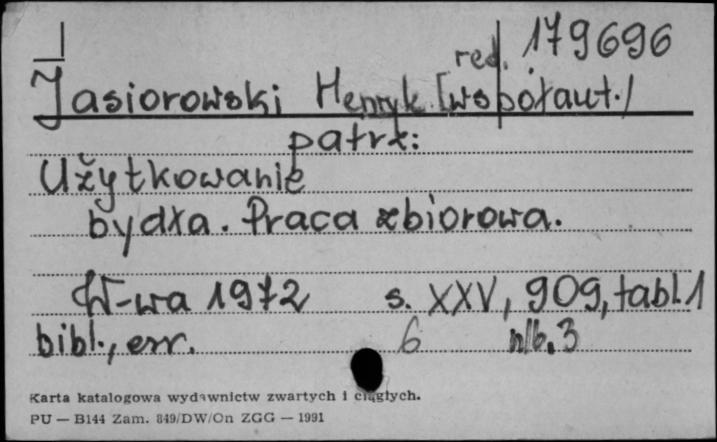 I
red. 179696
Jasiorowski Henryk [współaut./
patrz:
Użytkowanie
bydła. Praca zbiorowa.
W-wa 1972 s. XXV, 909, tabl. 1
bibl., err. 6 nlb. 3
Karta katalogowa wydawnictw zwartych i ciągłych.
PU — B144 Zam. 849/DW/On ZGG — 1991